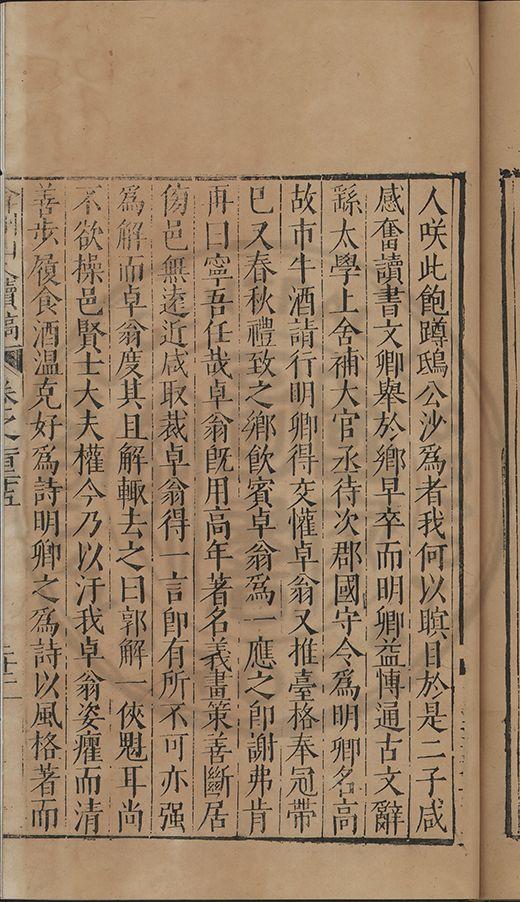 人咲此飽蹲鴟公沙爲者我何以瞑目於是二子咸
感奮讀書文卿舉於鄉早卒而明卿益博通古文辭
繇太學上舍補大官丞待次郡國守令爲明卿名高
故市牛酒請行明卿得交懽卓翁又推臺格奉冠帶
已又春秋禮致之鄉飲賓卓翁爲一應之卽謝弗肯
再曰寧吾任哉卓翁旣用高年著名義畫策善斷居
傍邑無遠近咸取裁卓翁得一言卽有所不可亦强
爲解而卓翁度其且解輙去之曰郭解一俠魁耳尚
不欲操邑賢士大夫權今乃以汙我卓翁姿癯而清
善步履食酒溫克好爲詩明卿之爲詩以風格著而
山人續稿
卷之一百五